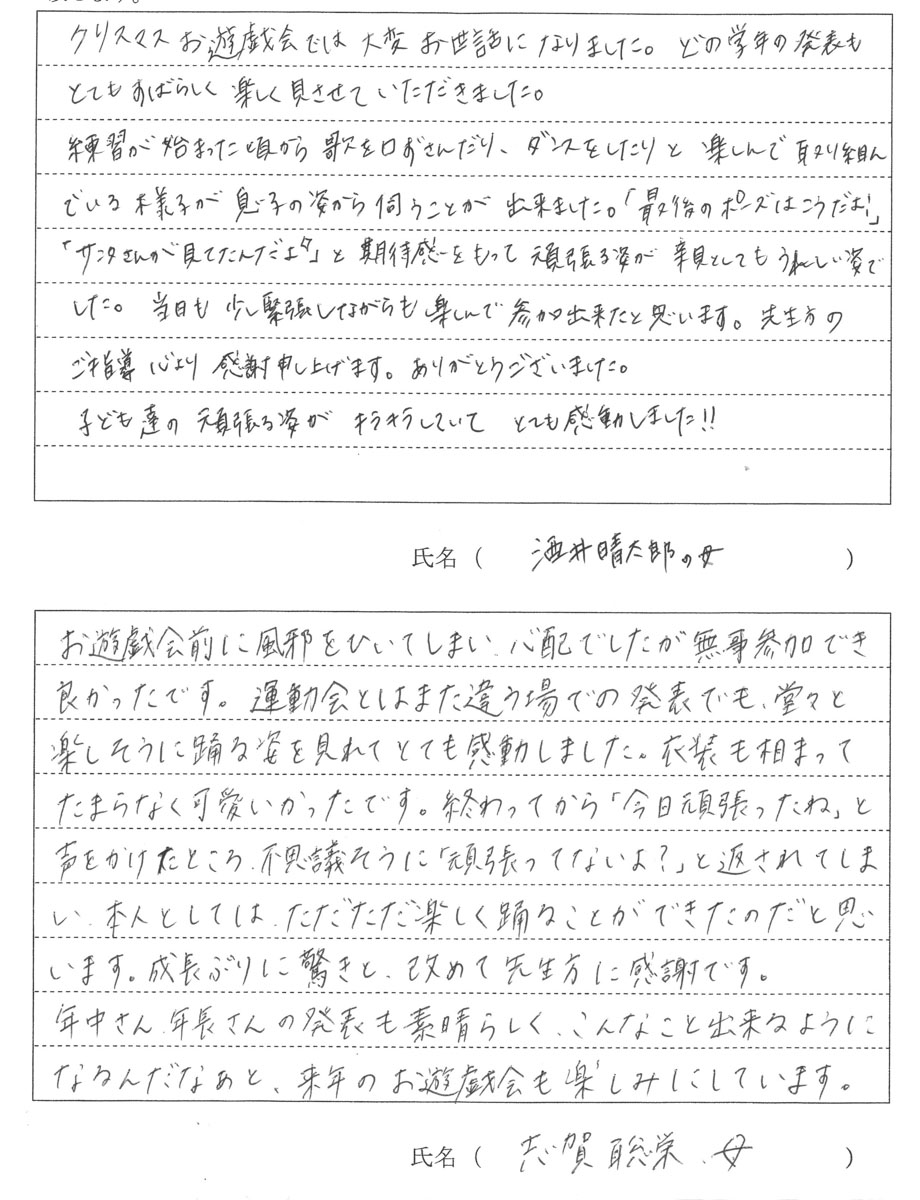 クリスマスお遊戯会では大変お世話になりました。どの学年の発表も
とてもすばらしく楽しく見させていただきました。
練習が始まった頃から歌を口ずさんだり、ダンスをしたりと楽しんで取り組ん
でいる様子が息子の姿から伺うことが出来ました。「最後のポーズはこうだよ!」
「サンタさんが見てたんだよ」と期待感をもって頑張る姿が親としてもうれしい姿で
した。当日も少し緊張しながらも楽しんで参加出来たと思います。先生方の
ご指導心より感謝申し上げます。ありがとうございました。
子ども達の頑張る姿がキラキラしていてとても感動しました!!
氏名（酒井晴太郎の母）
お遊戯会前に風邪をひいてしまい、心配でしたが無事参加でき
良かったです。運動会とはまた違う場での発表でも、堂々と
楽しそうに踊る姿を見れてとても感動しました。衣装も相まって
たまらなく可愛いかったです。終わってから「今日頑張ったね」と
声をかけたところ、不思議そうに「頑張ってないよ？」と返されてしま
い、本人としては、ただただ楽しく踊ることができたのだと思
います。成長ぶりに驚きと、改めて先生方に感謝です。
年中さん、年長さんの発表も素晴らしく、こんなこと出来るように
なるんだなぁと、来年のお遊戯会も楽しみにしています。
氏名（志賀聡栄、母）